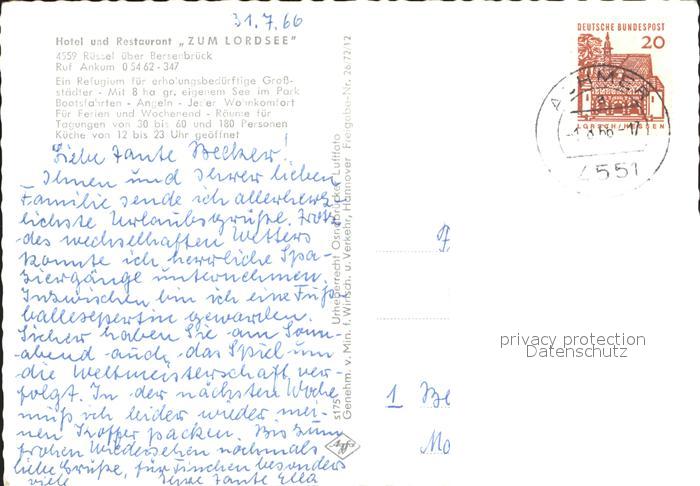 31.7.66
Hotel und Restaurant „ZUM LORDSEE"
4559 Rüssel über Bersenbrück
Ruf Ankum 0 54 62 - 347
Ein Refugium für erholungsbedürftige Groß-
städter - Mit 8 ha gr. eigenem See im Park
Bootsfahrten - Angeln - Jeder Wohnkomfort
Für Ferien und Wochenend - Räume für
Tagungen von 30 bis 60 und 180 Personen
Küche von 12 bis 23 Uhr geöffnet
Liebe Tante Becker!
Ihnen und Ihrer lieben
Familie sende ich allerherz-
lichste Urlaubsgrüße. Trotz
des wechselhaften Wetters
konnte ich herrliche Spa-
ziergänge unternehmen.
Inzwischen bin ich eine Fuß-
ballexpertin geworden.
Sicher haben Sie am Sonn-
abend auch das Spiel um
die Weltmeisterschaft ver-
folgt. In der nächsten Woche
muß ich leider wieder mei-
nen Koffer packen. Bis zum
frohen Wiedersehen nochmals
liebe Grüße, für Finchen besonders
viele Ihre Tante Ella
Urheberrecht Osnabrücker Luftfoto
Genehm. v. Min. f. Wirtsch. u. Verkehr, Hannover Freigabe-Nr. 26/72/12
Agfa
DEUTSCHE BUNDESPOST
20
LORSCH/HESSEN
ACHMER
-1.8.66-17
4551
1 Be
Mo
privacy protection
Datenschutz